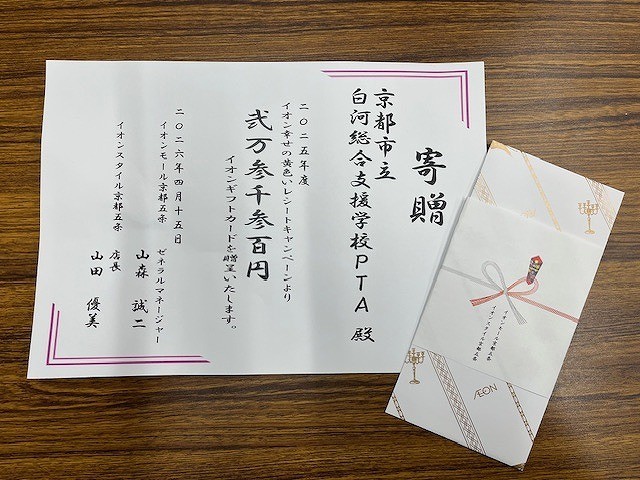 寄贈
京都市立
白河総合支援学校PTA 殿
二〇二五年度
イオン幸せの黄色いレシートキャンペーンより
弐万参千参百円
イオンギフトカードを贈呈いたします。
二〇二六年四月十五日
イオンモール京都五条
ゼネラルマネージャー
山森 誠二
イオンスタイル京都五条
店長
山田 優美
イオンモール京都五条
イオンスタイル京都五条
ÆON